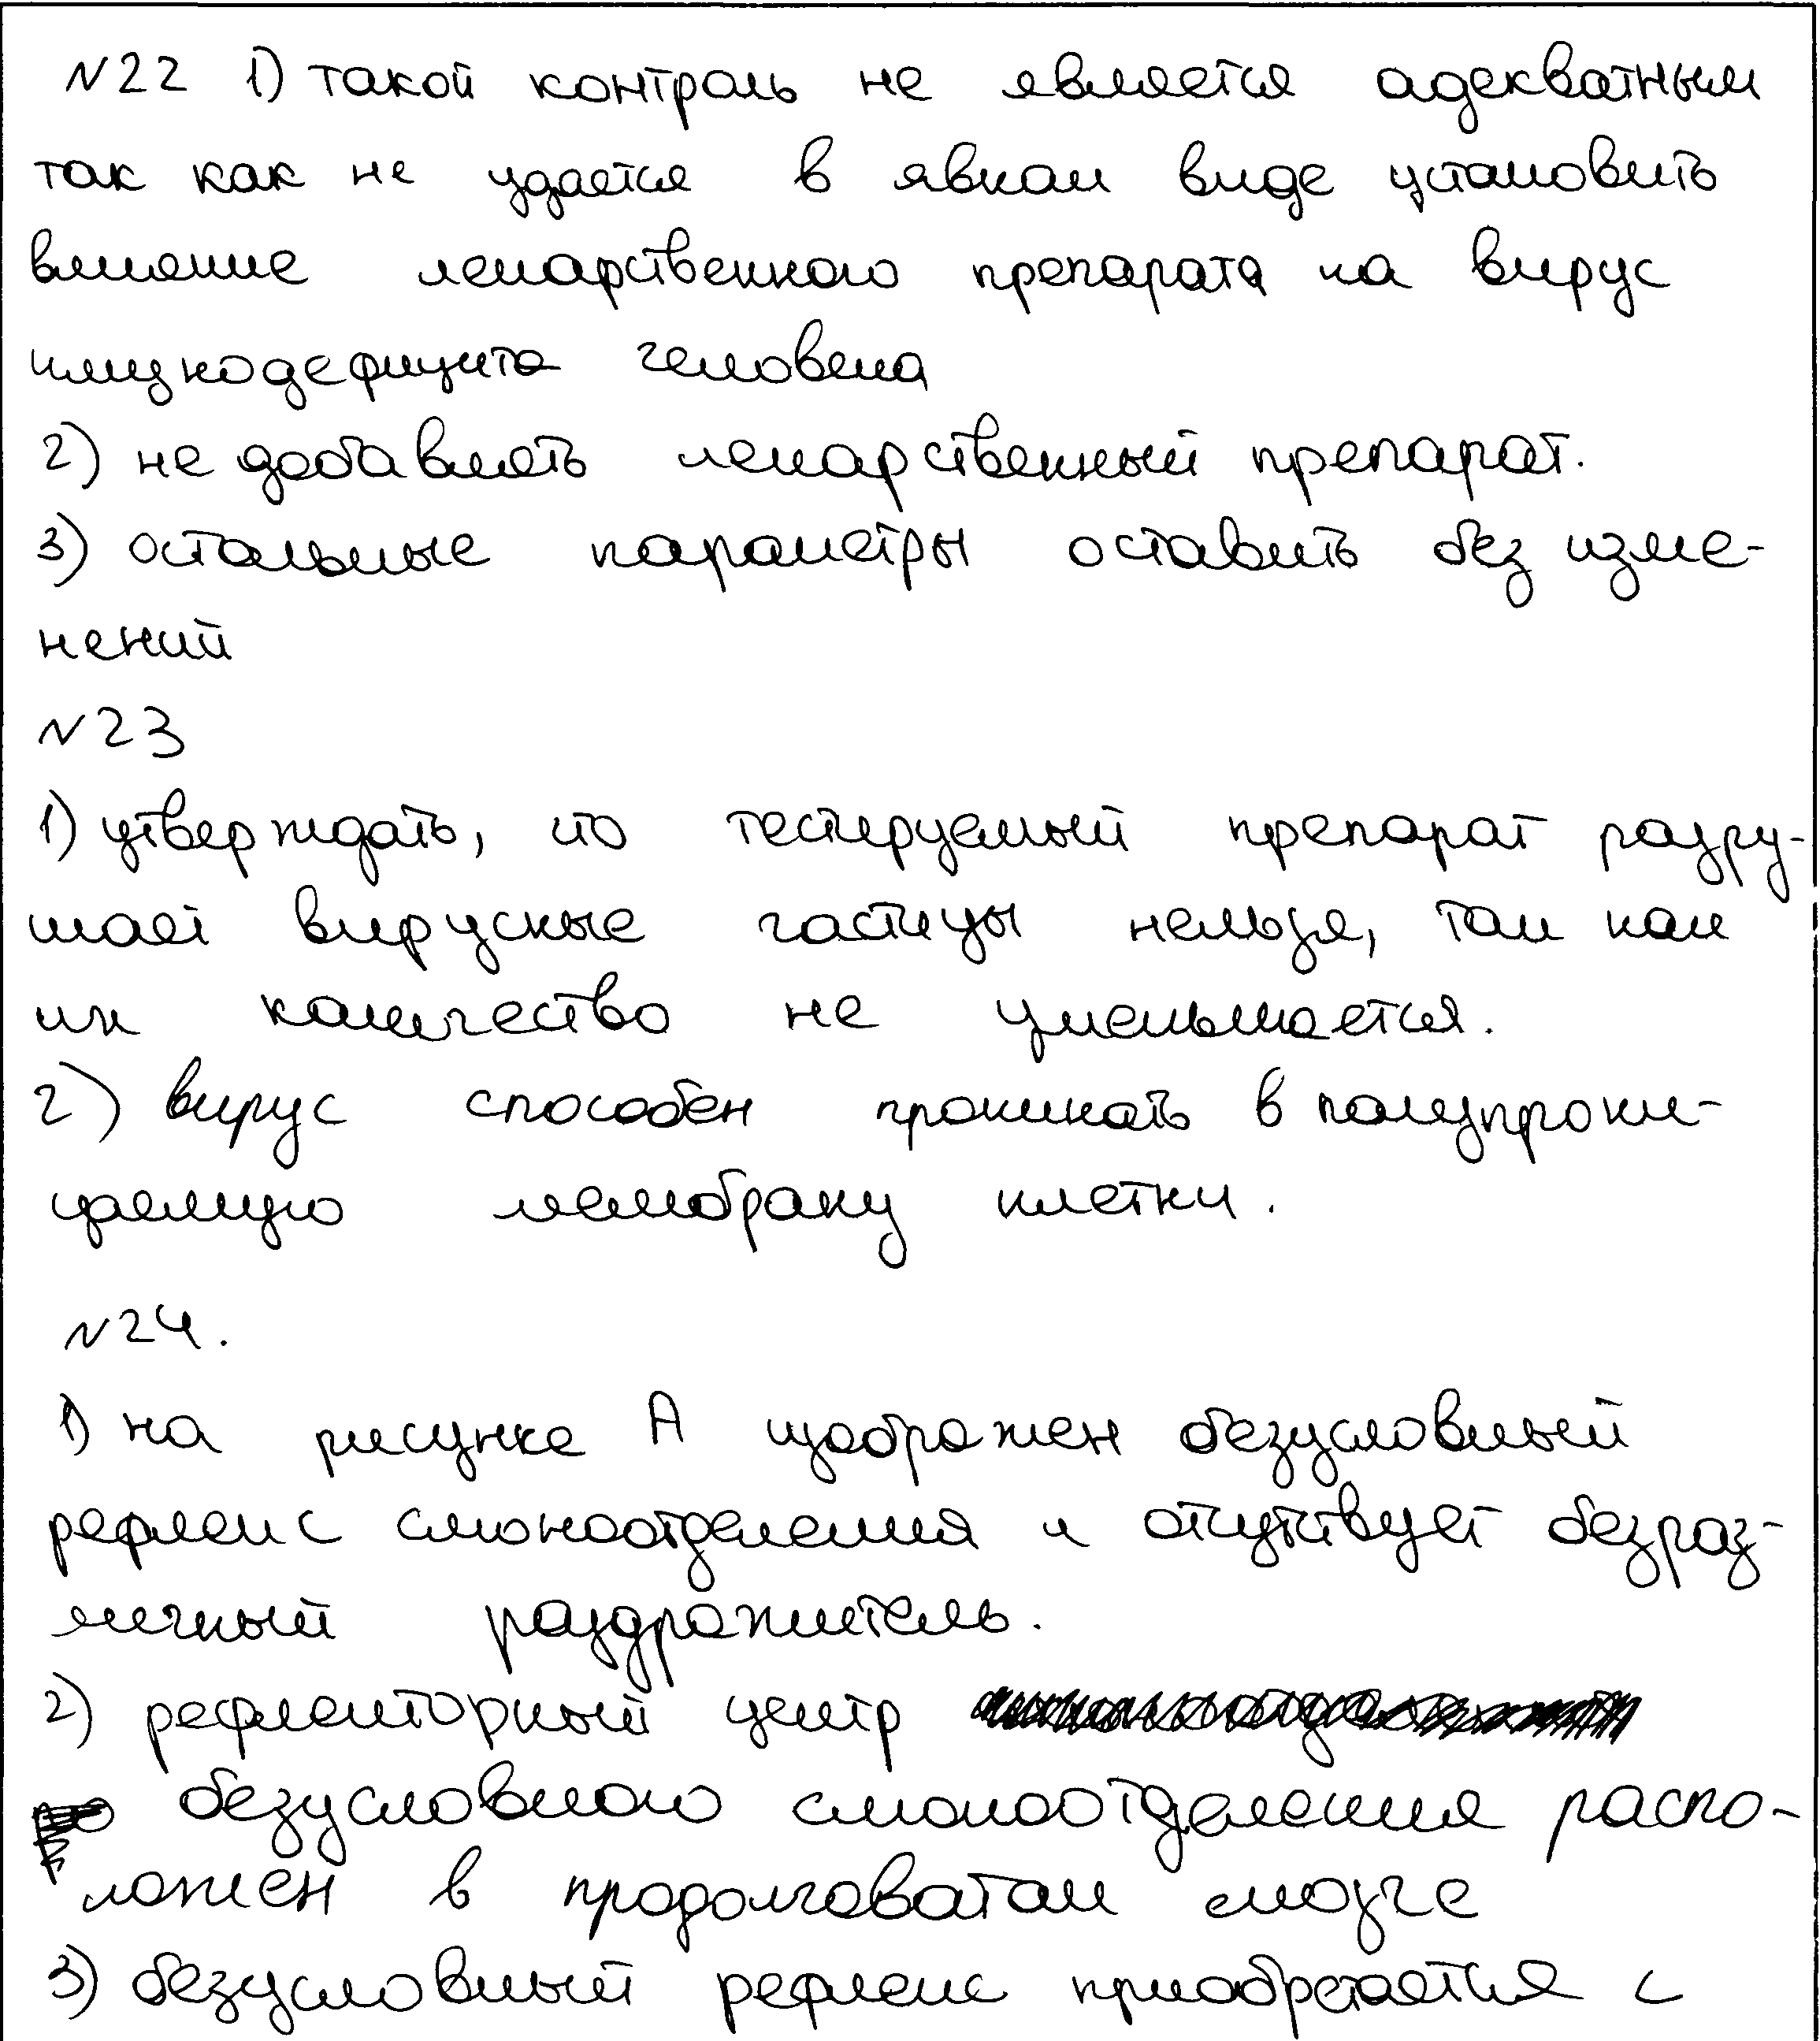 N22 1) такой контроль не является адекватным
так как не удается в явном виде установить
влияние лекарственного препарата на вирус
иммунодефицита человека
2) не добавлять лекарственный препарат.
3) остальные параметры оставить без изме-
нений
N23
1) утверждать, что тестируемый препарат разру-
шает вирусные частицы нельзя, так как
их количество не уменьшается.
2) вирус способен проникать в полупрони-
цаемую мембрану клетки.
N24.
1) на рисунке А изображен безусловный
рефлекс слюноотделения и отсутствует безраз-
личный раздражитель.
2) рефлекторный центр
безусловного слюноотделения распо-
ложен в продолговатом мозге
3) безусловный рефлекс приобретается с